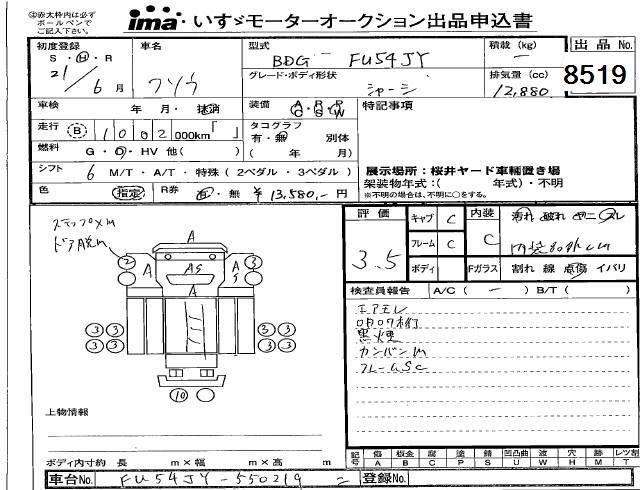 ④赤太枠内は必ず
ボールペンで
ご記入下さい。
ima いすゞモーターオークション出品申込書
初度登録 S・H・R 21/6月
車名 フソウ
型式 BDG- FU54JY
積載(kg) -
出品No. 8519
グレード・ボディ形状 シャーシ
排気量(cc) 12,880
車検 年 月・抹消
装備 A/C P/S P/W
特記事項
走行 B 1002 000km「 」
タコグラフ 有・無 別体
燃料 G・D・HV 他( )
( 年 月)
シフト 6 M/T・A/T・特殊(2ペダル・3ペダル)
展示場所:桜井ヤード車輌置き場
架装物年式:( 年式)・不明
※不明の場合は、不明に○をする。
色 (指定) R券 有・無 ¥13,580.-円
ステップメM
ドア脱M
評価 3.5
キャブ C
内装 C
汚れ 破れ ヤニ スレ
フレーム C
ボディ
Fガラス 割れ 線 点傷 イバリ
検査員報告 A/C( - ) B/T( )
エアモレ
黒煙
カンバンM
フレームSC
A
2 3
A AS A S
A
3 3 3 3
3 3 3 3
10
上物情報
ボディ内寸約 長 m×幅 m×高 m
記号 傷A 板金B 腐C 塗P 錆S 凹凸曲U 波W 穴H 跡M レツ割T
車台No. FU54JY-550219
登録No.